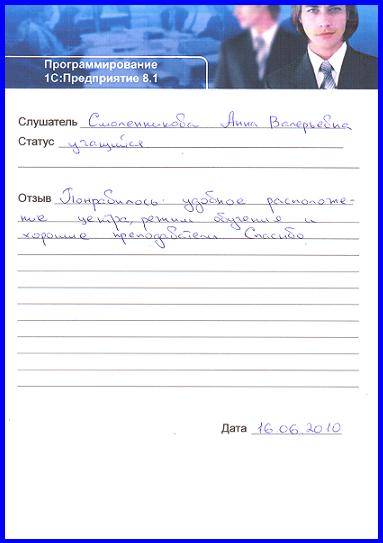 Программирование
1С:Предприятие 8.1
Слушатель Смоленникова Анна Валерьевна
Статус учащийся
Отзыв Понравилось: удобное расположе-
ние центра, режим обучения и
хорошие преподаватели Спасибо
Дата 16.06.2010